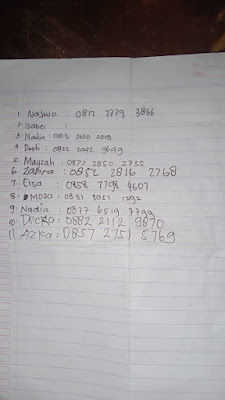 1. Najwa : 0812 2779 3866
2. Isabel :
3. Nadia : 0813 2020 2019
4. Desti : 0822 2092 9699
5. Maysah : 0877 2850 2735
6. Zahra : 0852 2816 2768
7. Elsa : 0858 7798 4607
8. Moza : 0831 3051 1292
9. Nadia : 0877 6519 7799
10. : 0882 2112 9870
11. Azka : 0857 2751 5769